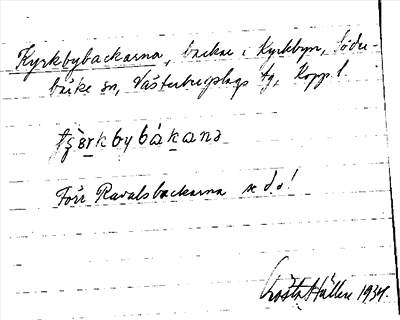 Kyrkbybackarna, backar i Kyrkbyn, Söder-
bärke sn, Västerbergslags tg, Kopp. l.
Förr Ravalsbackarna se d.o!
Gösta Hallén 1934.